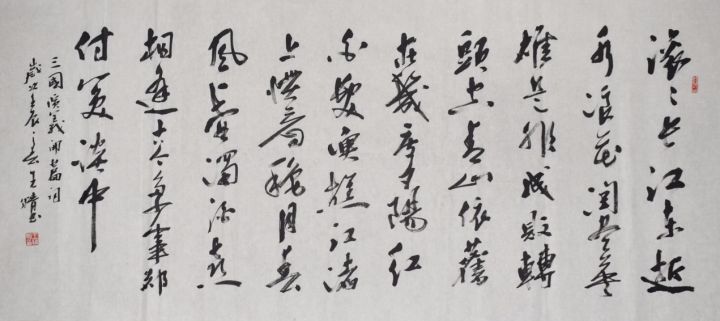 滚〻长江东逝
水浪花淘尽英
雄是非成败轉
頭空青山依舊
在幾度夕陽红
白髮渔樵江渚
上惯看秋月春
風一壶濁酒喜
相逢古今多少事都
付笑谈中
三國演義開篇词
歲次壬辰